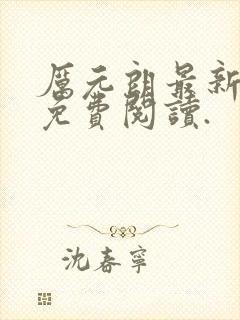 厲元朗最新
免費閱讀.
沈春寧